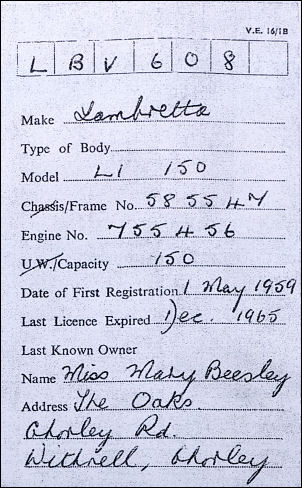 V.E. 16/1B
L B V 6 0 8
Make Lambretta
Type of Body
Model LI 150
Chassis/Frame No. 585547
Engine No. 755456
U.W./Capacity 150
Date of First Registration 1 May 1959
Last Licence Expired Dec. 1965
Last Known Owner
Name Miss Mary Beesley
Address The Oaks.
Chorley Rd.
Withnell, Chorley